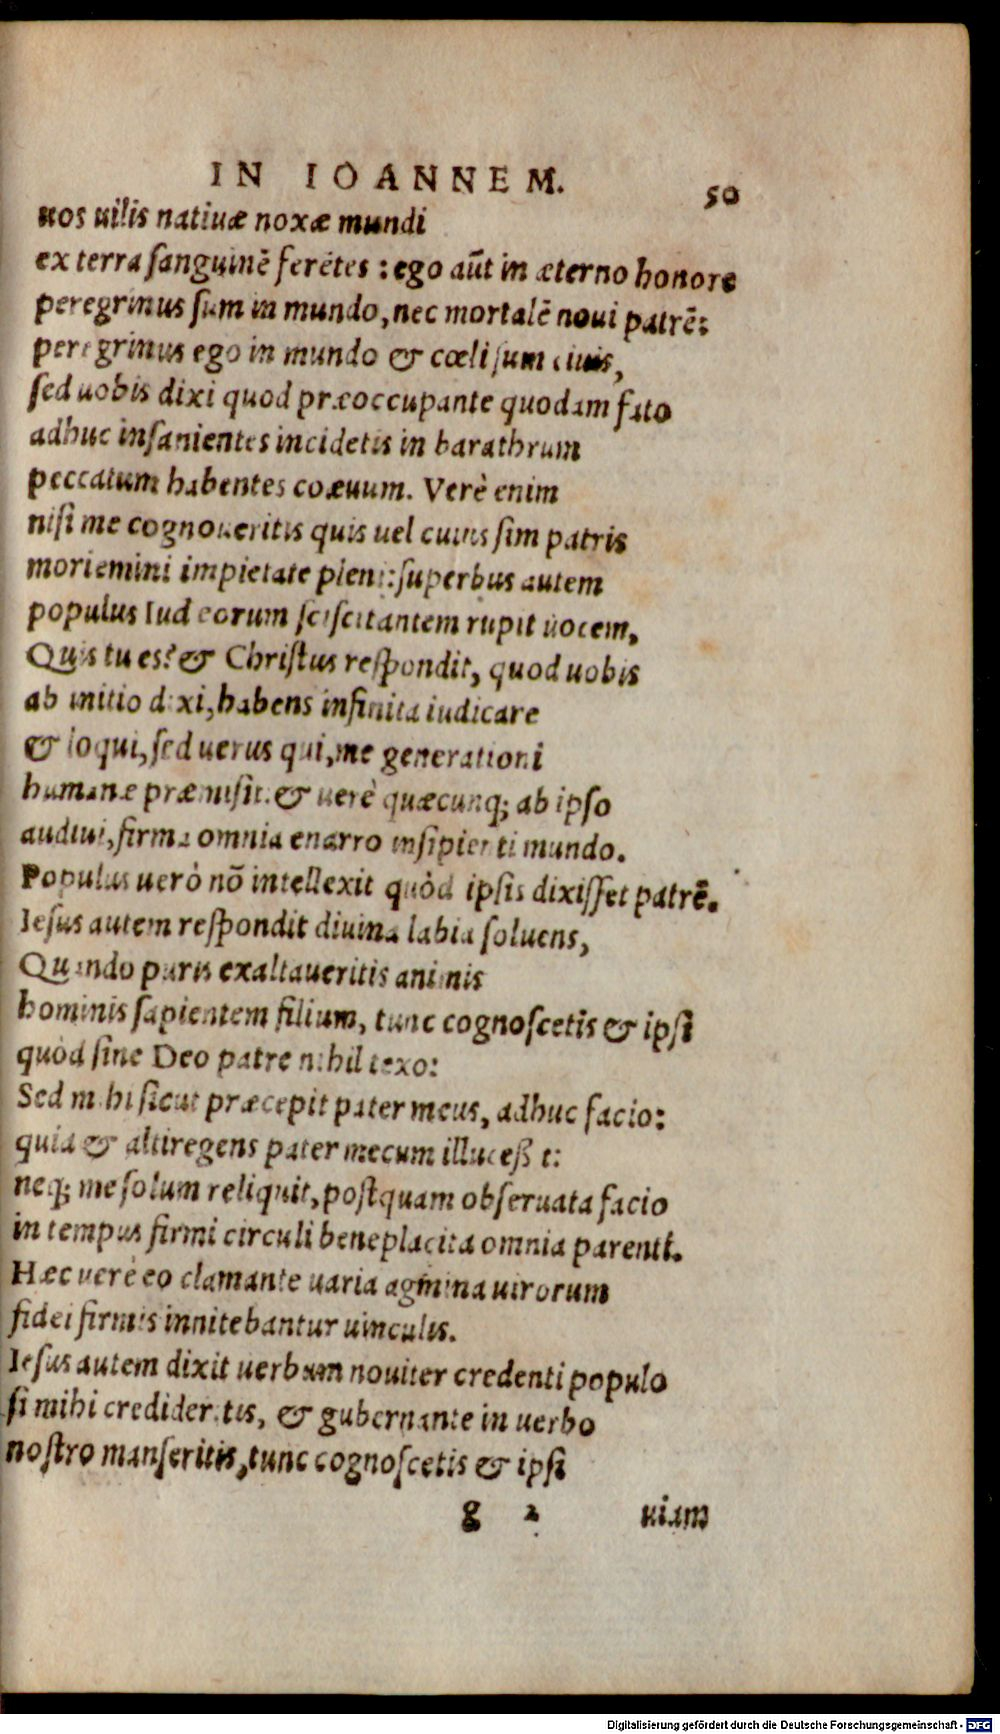 IN IOANNEM. 50
uos uilis natiuæ noxæ mundi
ex terra sanguinẽ ferẽtes : ego aũt in æterno honore
peregrinus sum in mundo, nec mortalẽ noui patrẽ:
peregrinus ego in mundo & cœli sum ciuis,
sed uobis dixi quod præoccupante quodam fato
adhuc insanientes incidetis in barathrum
peccatum habentes coæuum. Verè enim
nisi me cognoueritis quis uel cuius sim patris
moriemini impietate pleni: superbus autem
populus Iudæorum sciscitantem rupit uocem,
Quis tu es? & Christus respondit, quod uobis
ab initio dixi, habens infinita iudicare
& loqui, sed uerus qui, me generationi
humanæ præmisit. & uerè quæcunq; ab ipso
audiui, firma omnia enarro insipienti mundo.
Populus uerò nõ intellexit quòd ipsis dixisset patrẽ.
Iesus autem respondit diuina labia soluens,
Quando puris exaltaueritis animis
hominis sapientem filium, tunc cognoscetis & ipsi
quòd sine Deo patre nihil texo:
Sed mihi sicut præcepit pater meus, adhuc facio:
quia & altiregens pater mecum illucesset:
neq; me solum reliquit, postquam obseruata facio
in tempus firmi circuli beneplacita omnia parenti.
Hæc uerè eo clamante uaria agmina uirorum
fidei firmis innitebantur uinculis.
Iesus autem dixit uerbum nouiter credenti populo
si mihi credideritis, & gubernante in uerbo
nostro manseritis, tunc cognoscetis & ipsi
g 2 uiam
Digitalisierung gefördert durch die Deutsche Forschungsgemeinschaft - DFG